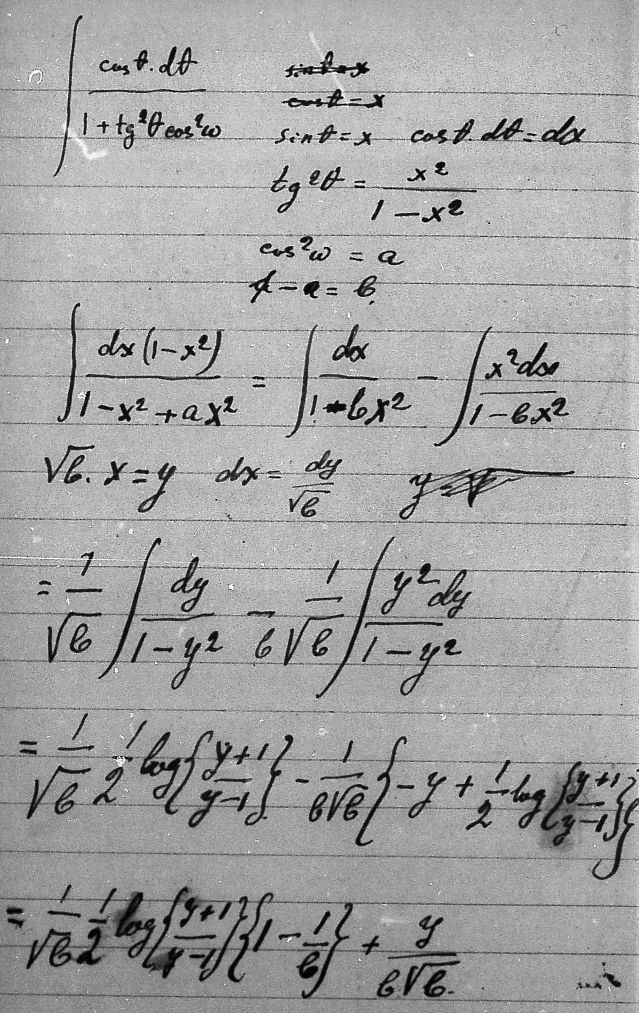 ∫ cosθ.dθ / (1+tg²θ cos²ω)
sinθ=x
cosθ=x
sinθ=x cosθ.dθ=dx
tg²θ = x² / (1−x²)
cos²ω = a
1−a = b.
∫ dx(1−x²) / (1−x²+ax²) = ∫ dx / (1−bx²) − ∫ x²dx / (1−bx²)
√b. x=y dx= dy/√b
= 1/√b ∫ dy / (1−y²) − 1/(b√b) ∫ y²dy / (1−y²)
= 1/√b 1/2 log{(y+1)/(y−1)} − 1/(b√b) {−y + 1/2 log{(y+1)/(y−1)}}
= 1/√b 1/2 log{(y+1)/(y−1)}{1−1/b} + y/(b√b).